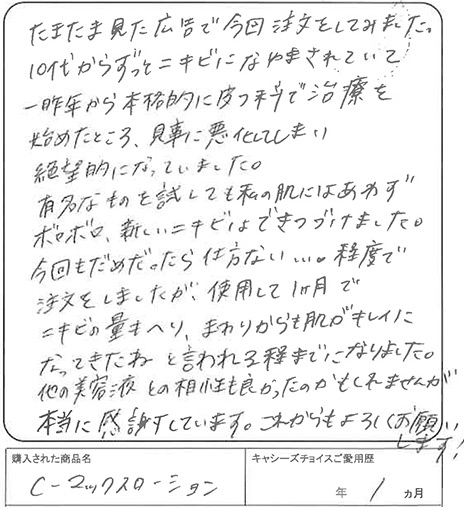 たまたま見た広告で今回注文をしてみました。
10代からずっとニキビになやまされていて
一昨年から本格的に皮フ科で治療を
始めたところ、見事に悪化してしまい
絶望的になっていました。
有名なものを試しても私の肌にはあわず
ボロボロ、新しいニキビはできつづけました。
今回もだめだったら仕方ない…。程度で
注文をしましたが、使用して1ヶ月で
ニキビの量もへり、まわりからも肌がキレイに
なってきたねと言われる程までになりました。
他の美容液との相性も良かったのかもしれませんが
本当に感謝しています。これからもよろしくお願い
します!
購入された商品名
キャシーズチョイスご愛用歴
C-マックスローション
年 1 ヵ月